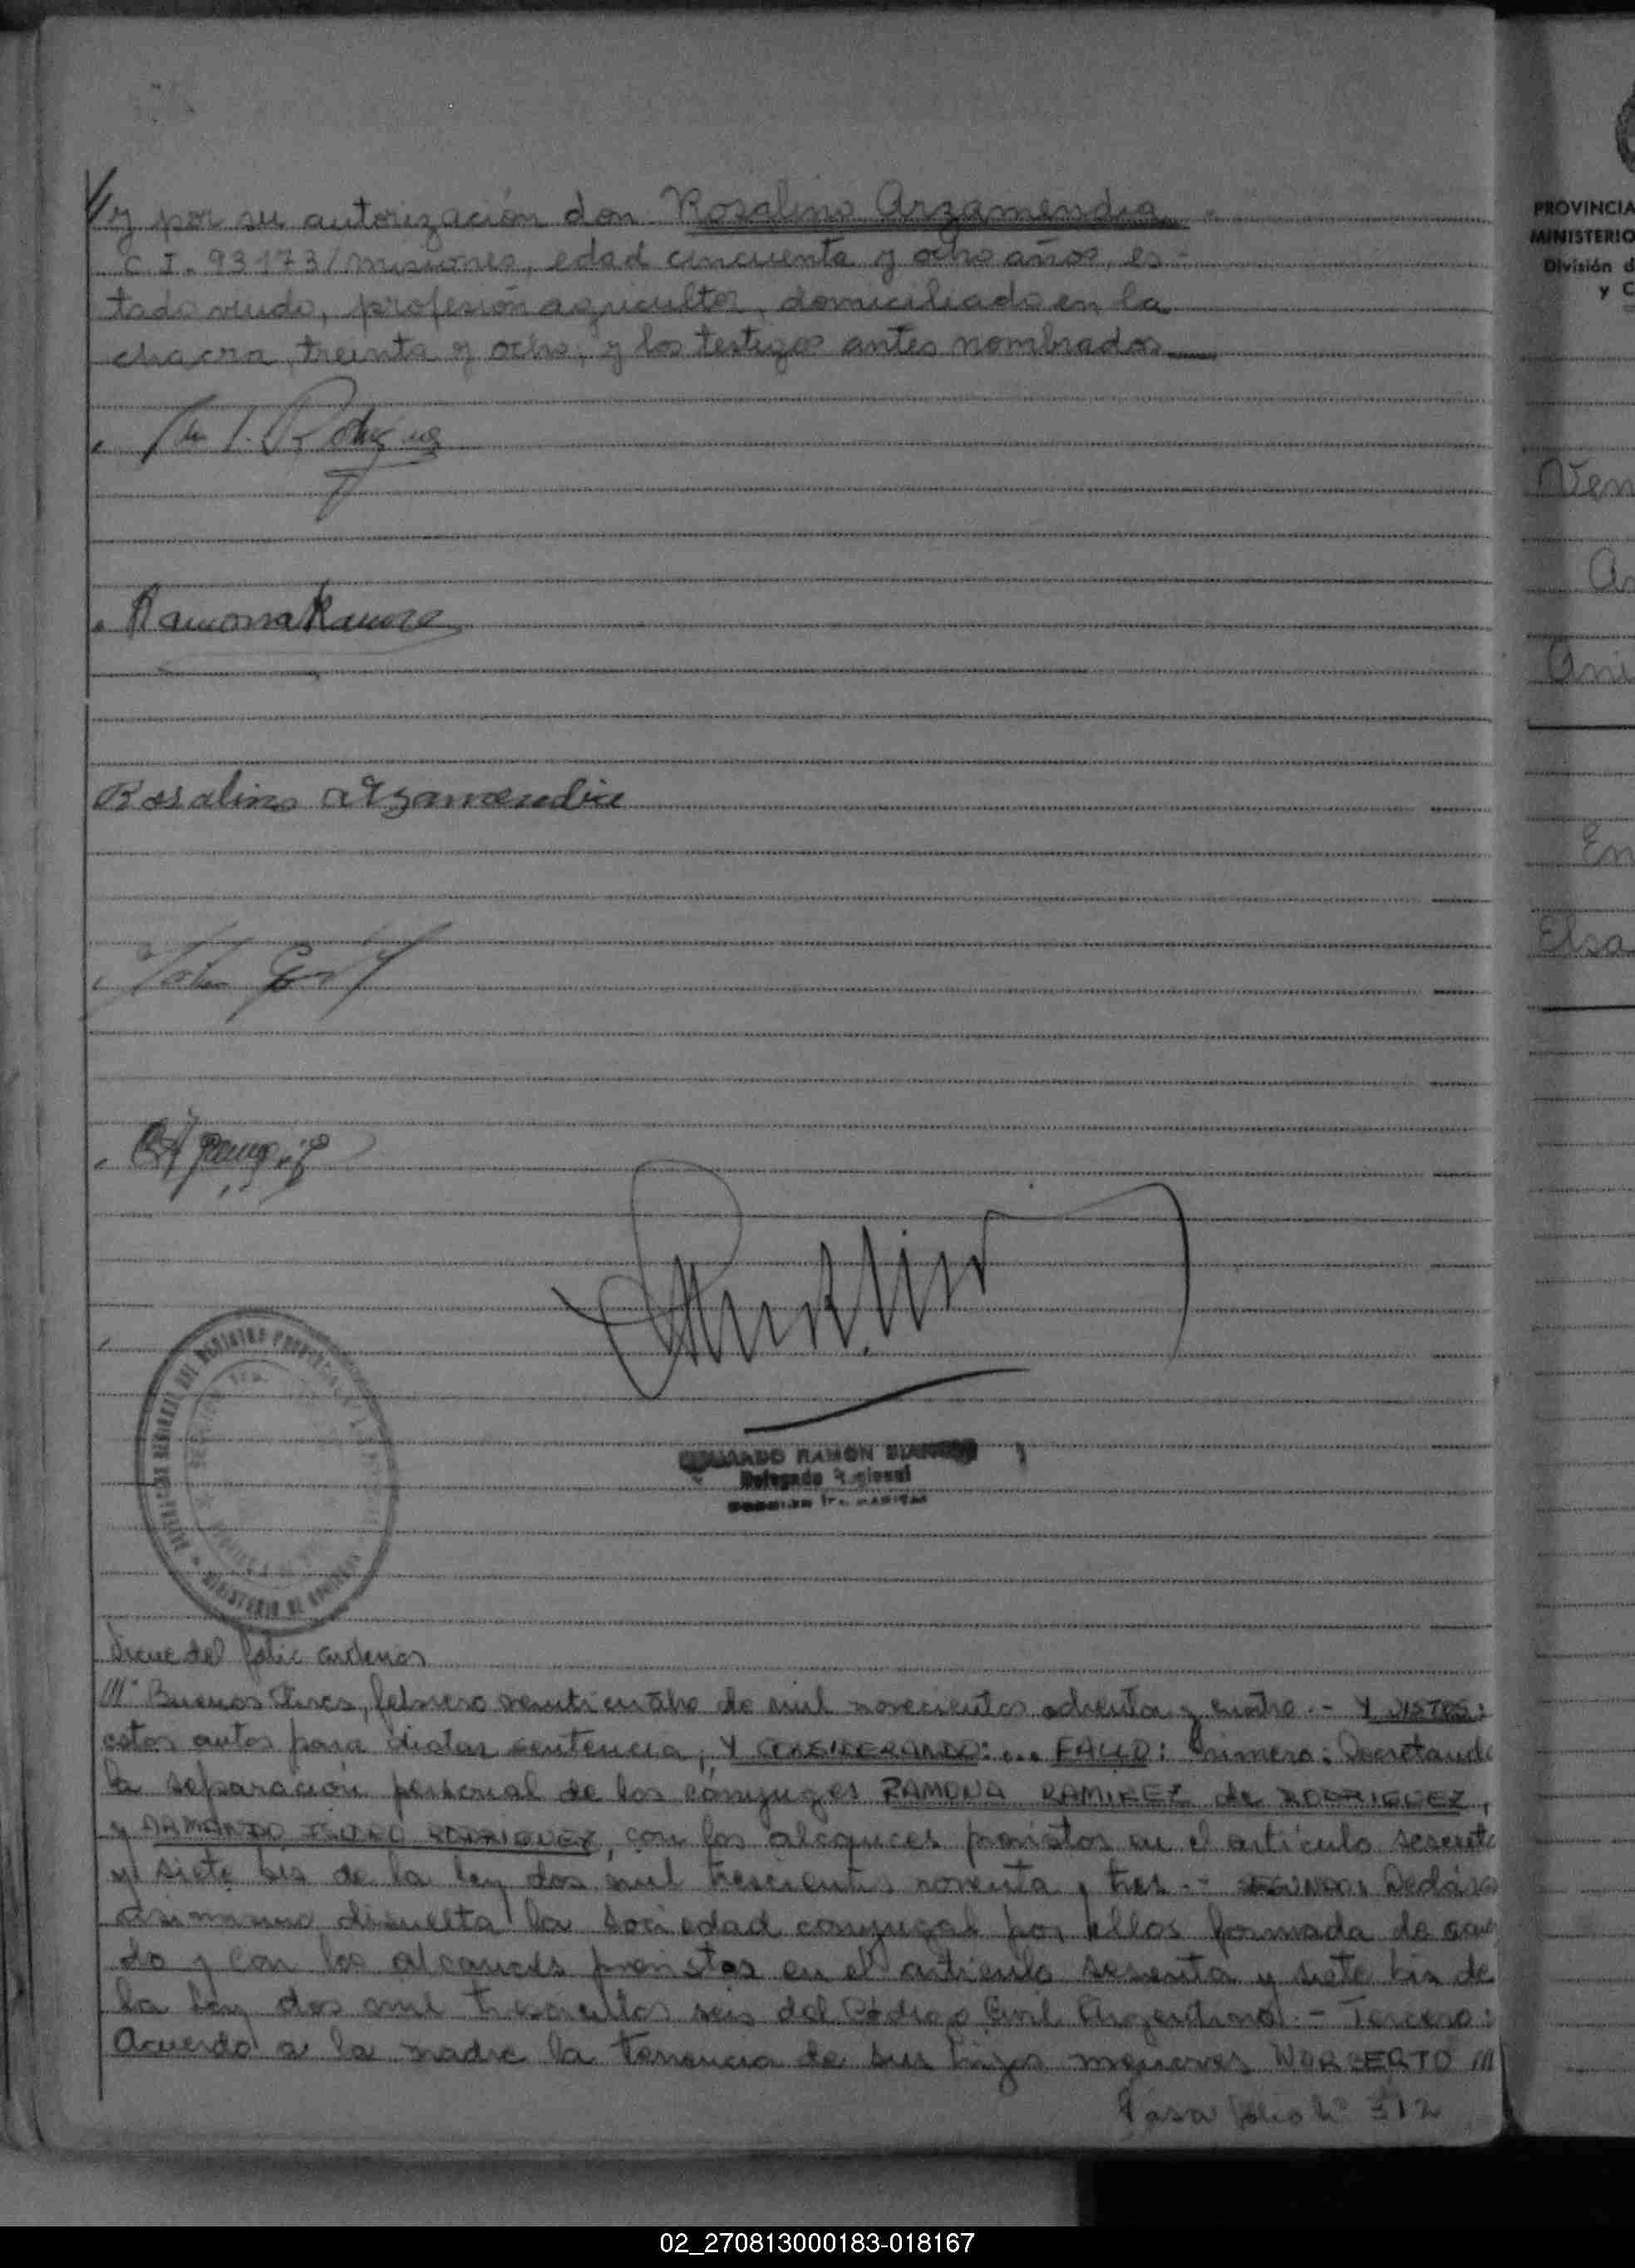 y por su autorización don Rosalino Arzamendia
C.I. 93173/misiones, edad cincuenta y ocho años, es-
tado viudo, profesión agricultor, domiciliado en la
chacra treinta y ocho; y los testigos antes nombrados
Ramona Ramirez
Rosalino arzamendia
RAMON
Delegado Regional
Sigue del folio
/// Buenos Aires, febrero veinticuatro de mil novecientos ochenta y cuatro.- Y VISTOS:
estos autos para dictar sentencia, Y CONSIDERANDO:... FALLO: Primero: Decretando
la separación personal de los cónyuges RAMONA RAMIREZ de RODRIGUEZ,
y ARMANDO ISIDRO RODRIGUEZ, con los alcances previstos en el artículo sesenta
y siete bis de la ley dos mil trescientos noventa y tres.- SEGUNDO: Declárase
asimismo disuelta la sociedad conyugal por ellos formada de acuer
do y con los alcances previstos en el artículo sesenta y siete bis de
la ley dos mil trescientos seis del Código Civil Argentino.- Tercero:
Acuerdo a la madre la tenencia de sus hijos menores NORBERTO ///
Pasa folio Nº 312
PROVINCIA
MINISTERIO
División d
y C
Ven
Ani
En
Elsa
02_270813000183-018167